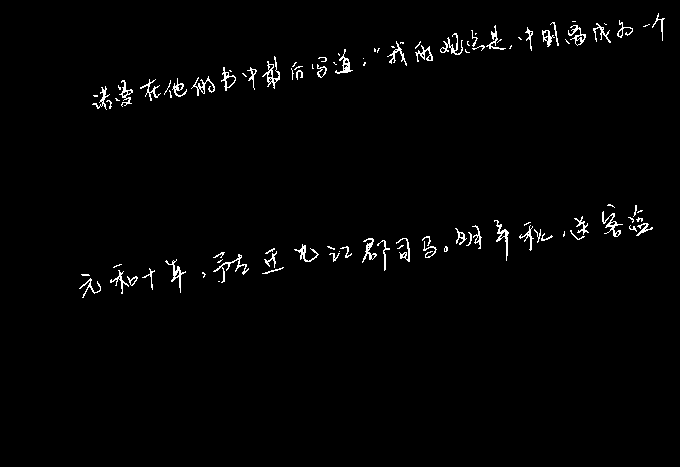 诺曼在他的书中最后写道:“我的观点是,中国离成为一个
元和十年,予左迁九江郡司马。明年秋,送客湓